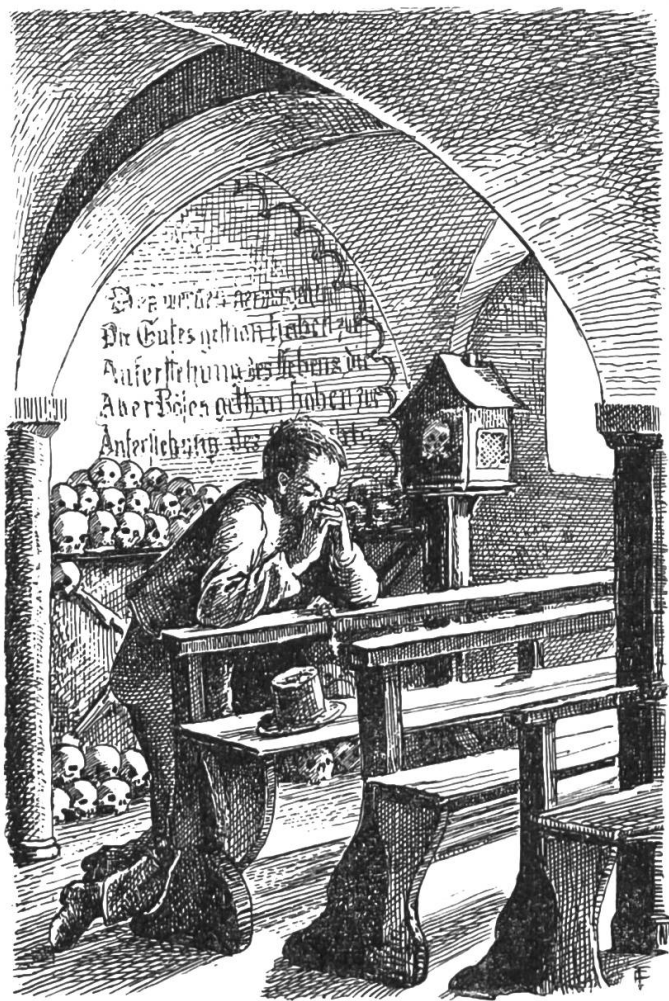 Die Gutes gethan haben zur
Auferstehung des Lebens die
Aber Böses gethan haben zur
Auferstehung des